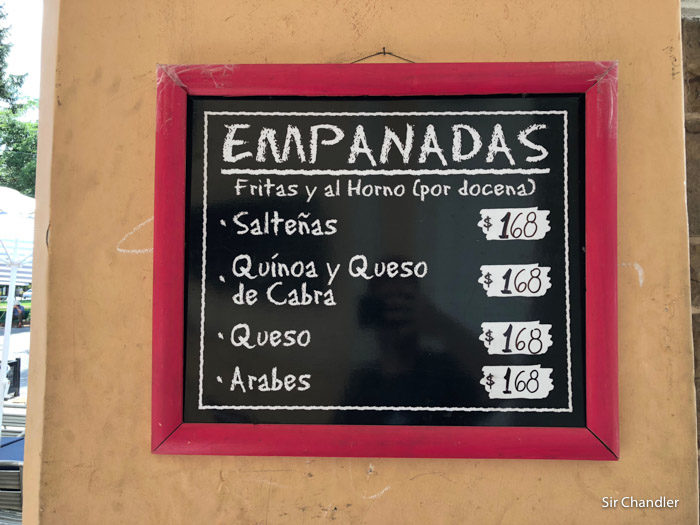 EMPANADAS
Fritas y al Horno (por docena)
· Salteñas $168
· Quínoa y Queso
de Cabra $168
· Queso $168
· Arabes $168
Sir Chandler